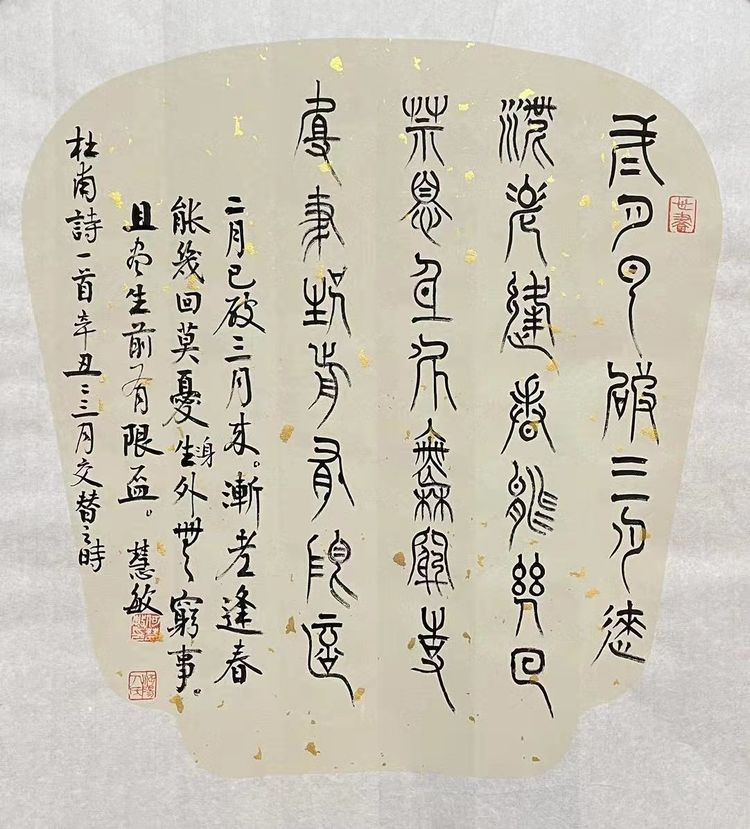 弍月已破三月逨
漸老逢春能幾回
莫思身外無窮事
且盡生前有限杯
二月已破三月来。漸老逢春
能幾回莫憂生身外無窮事。
且尽生前有限盃。慧敏
杜甫詩一首辛丑二三月交替之時